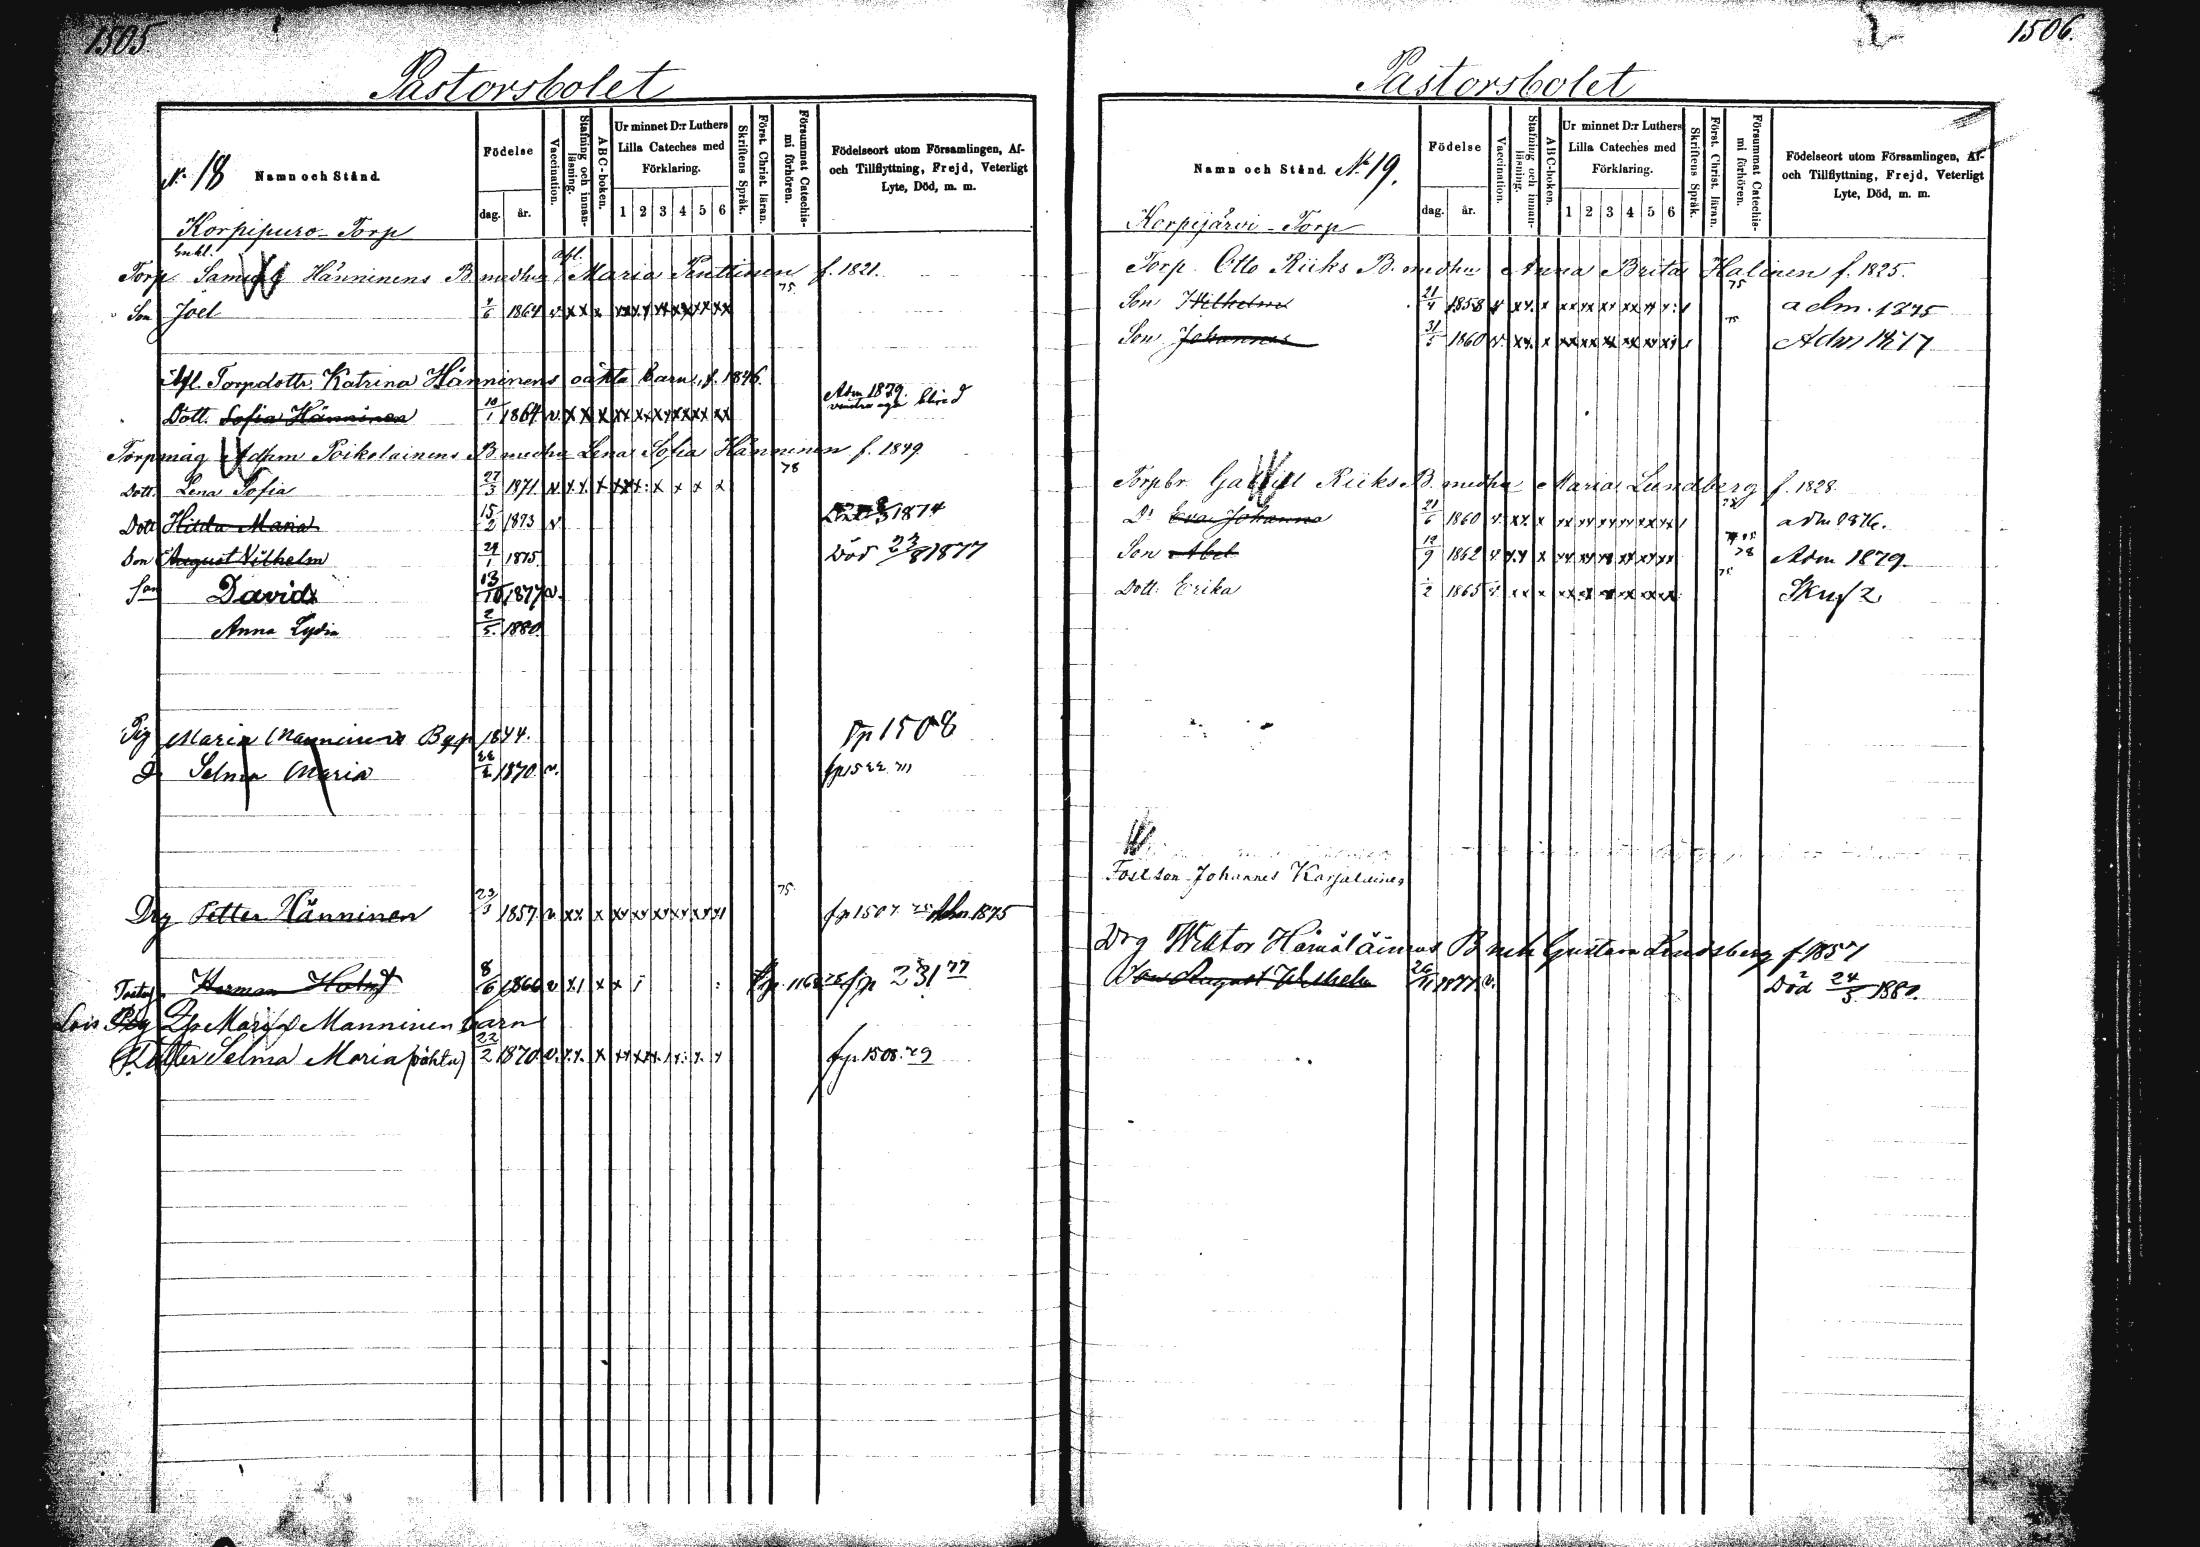 1505
Pastorsbolet
No 18 Namn och Stånd.
Födelse
dag. år.
Vaccination.
Stafning och innan-läsning.
ABC-boken.
Ur minnet D:r Luthers Lilla Cateches med Förklaring.
1 2 3 4 5 6
Skriftens Språk.
Först. Christ. läran.
Försummat Catechis-mi förhören.
Födelseort utom Församlingen, Af- och Tillflyttning, Frejd, Veterligt Lyte, Död, m. m.
Korpipuro-Torp
Enkl. afl.
Torp Samuel Hänninens B. medhu Maria Penttinen f. 1821.
75
Son Joel /6 1864 v x x x xx xx xx xx xx xx
Afl. Torpdottr. Katrina Hänninens oäkta barn, f. 1846.
Dott. Sofia Hänninen 10/1 1864 v. x x x xx xx xx xx xx xx Adm 1879. venstra öga blind
Torpmåg Adhm Poikolainens B medhu Lena Sofia Hänninen f. 1849
78
Dott. Lena Sofia 27/3 1871 v x x. x xxx: x x x x
Dott Hilda Maria 15/2 1873 v 1874
Son August Vilhelm 29/1 1875. Död 23/8 1877
Son David 13/10 1877 v.
Anna Lydia 2/5. 1880
Pig Maria Manninen B 1844. fp 1508
D Selma Maria 22/2 1870 v. fp 1522
75
Drg Petter Hänninen 23/3 1857. v xx. x xx xx xx xx xx x1 fp 1507. 75 Adm. 1875
Herman Holm 8/6 1866 v x1 x x frp. 1168 fp 231 77
Lois Pig Maria Manninen barn
Dotter Selma Maria (oäkta) 22/2 1870 v. x.x. x fp. 1508. 79
1506.
Pastorsbolet
Namn och Stånd. No 19.
Födelse
dag. år.
Vaccination.
Stafning och innan-läsning.
ABC-boken.
Ur minnet D:r Luthers Lilla Cateches med Förklaring.
1 2 3 4 5 6
Skriftens Språk.
Först. Christ. läran.
Försummat Catechis-mi förhören.
Födelseort utom Församlingen, Af- och Tillflyttning, Frejd, Veterligt Lyte, Död, m. m.
Korpijärvi-Torp
Torp. Otto Riiks B. medhu Anna Brita Halinen f. 1825.
75
Son Wilhelm 21/4 1858 v xx. x xx xx xx xx xx x: 1 adm. 1875
75
Son Johannes 31/ 1860 v. xx. x xx xx xx xx xx xx 1 Adm 1877
Torpbr. Gabriel Riiks B. medhu Maria Lundberg f. 1828.
D. Eva Johanna 21/6 1860 v. xx. x xx xx xx xx xx xx 1 adm 1876.
Son Abel 12/9 1862 v x.x x xx xx xx xx xx xx 78 Adm 1879.
75
Dott. Erika /2 1865 v. xx x xx xx xx xx xx xx Skuf 2
Fostson Johannes Karjalainen
Drg Wiktor Hämäläinens B mh Gustava Lindsberg f. 1857
Son August Wilhelm 26/11 1877. v. Död 24/5 1880.